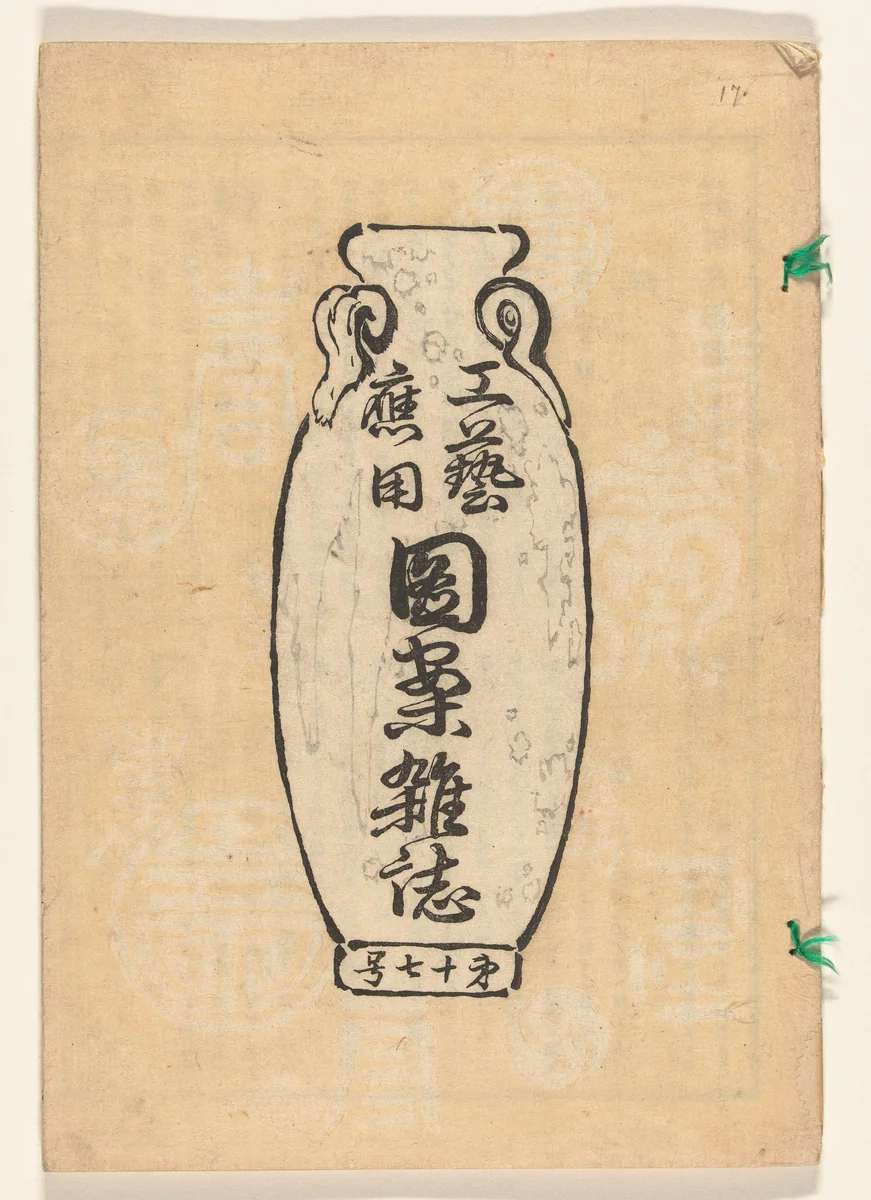 工藝
應用
圖案雜誌
号七十第
17.